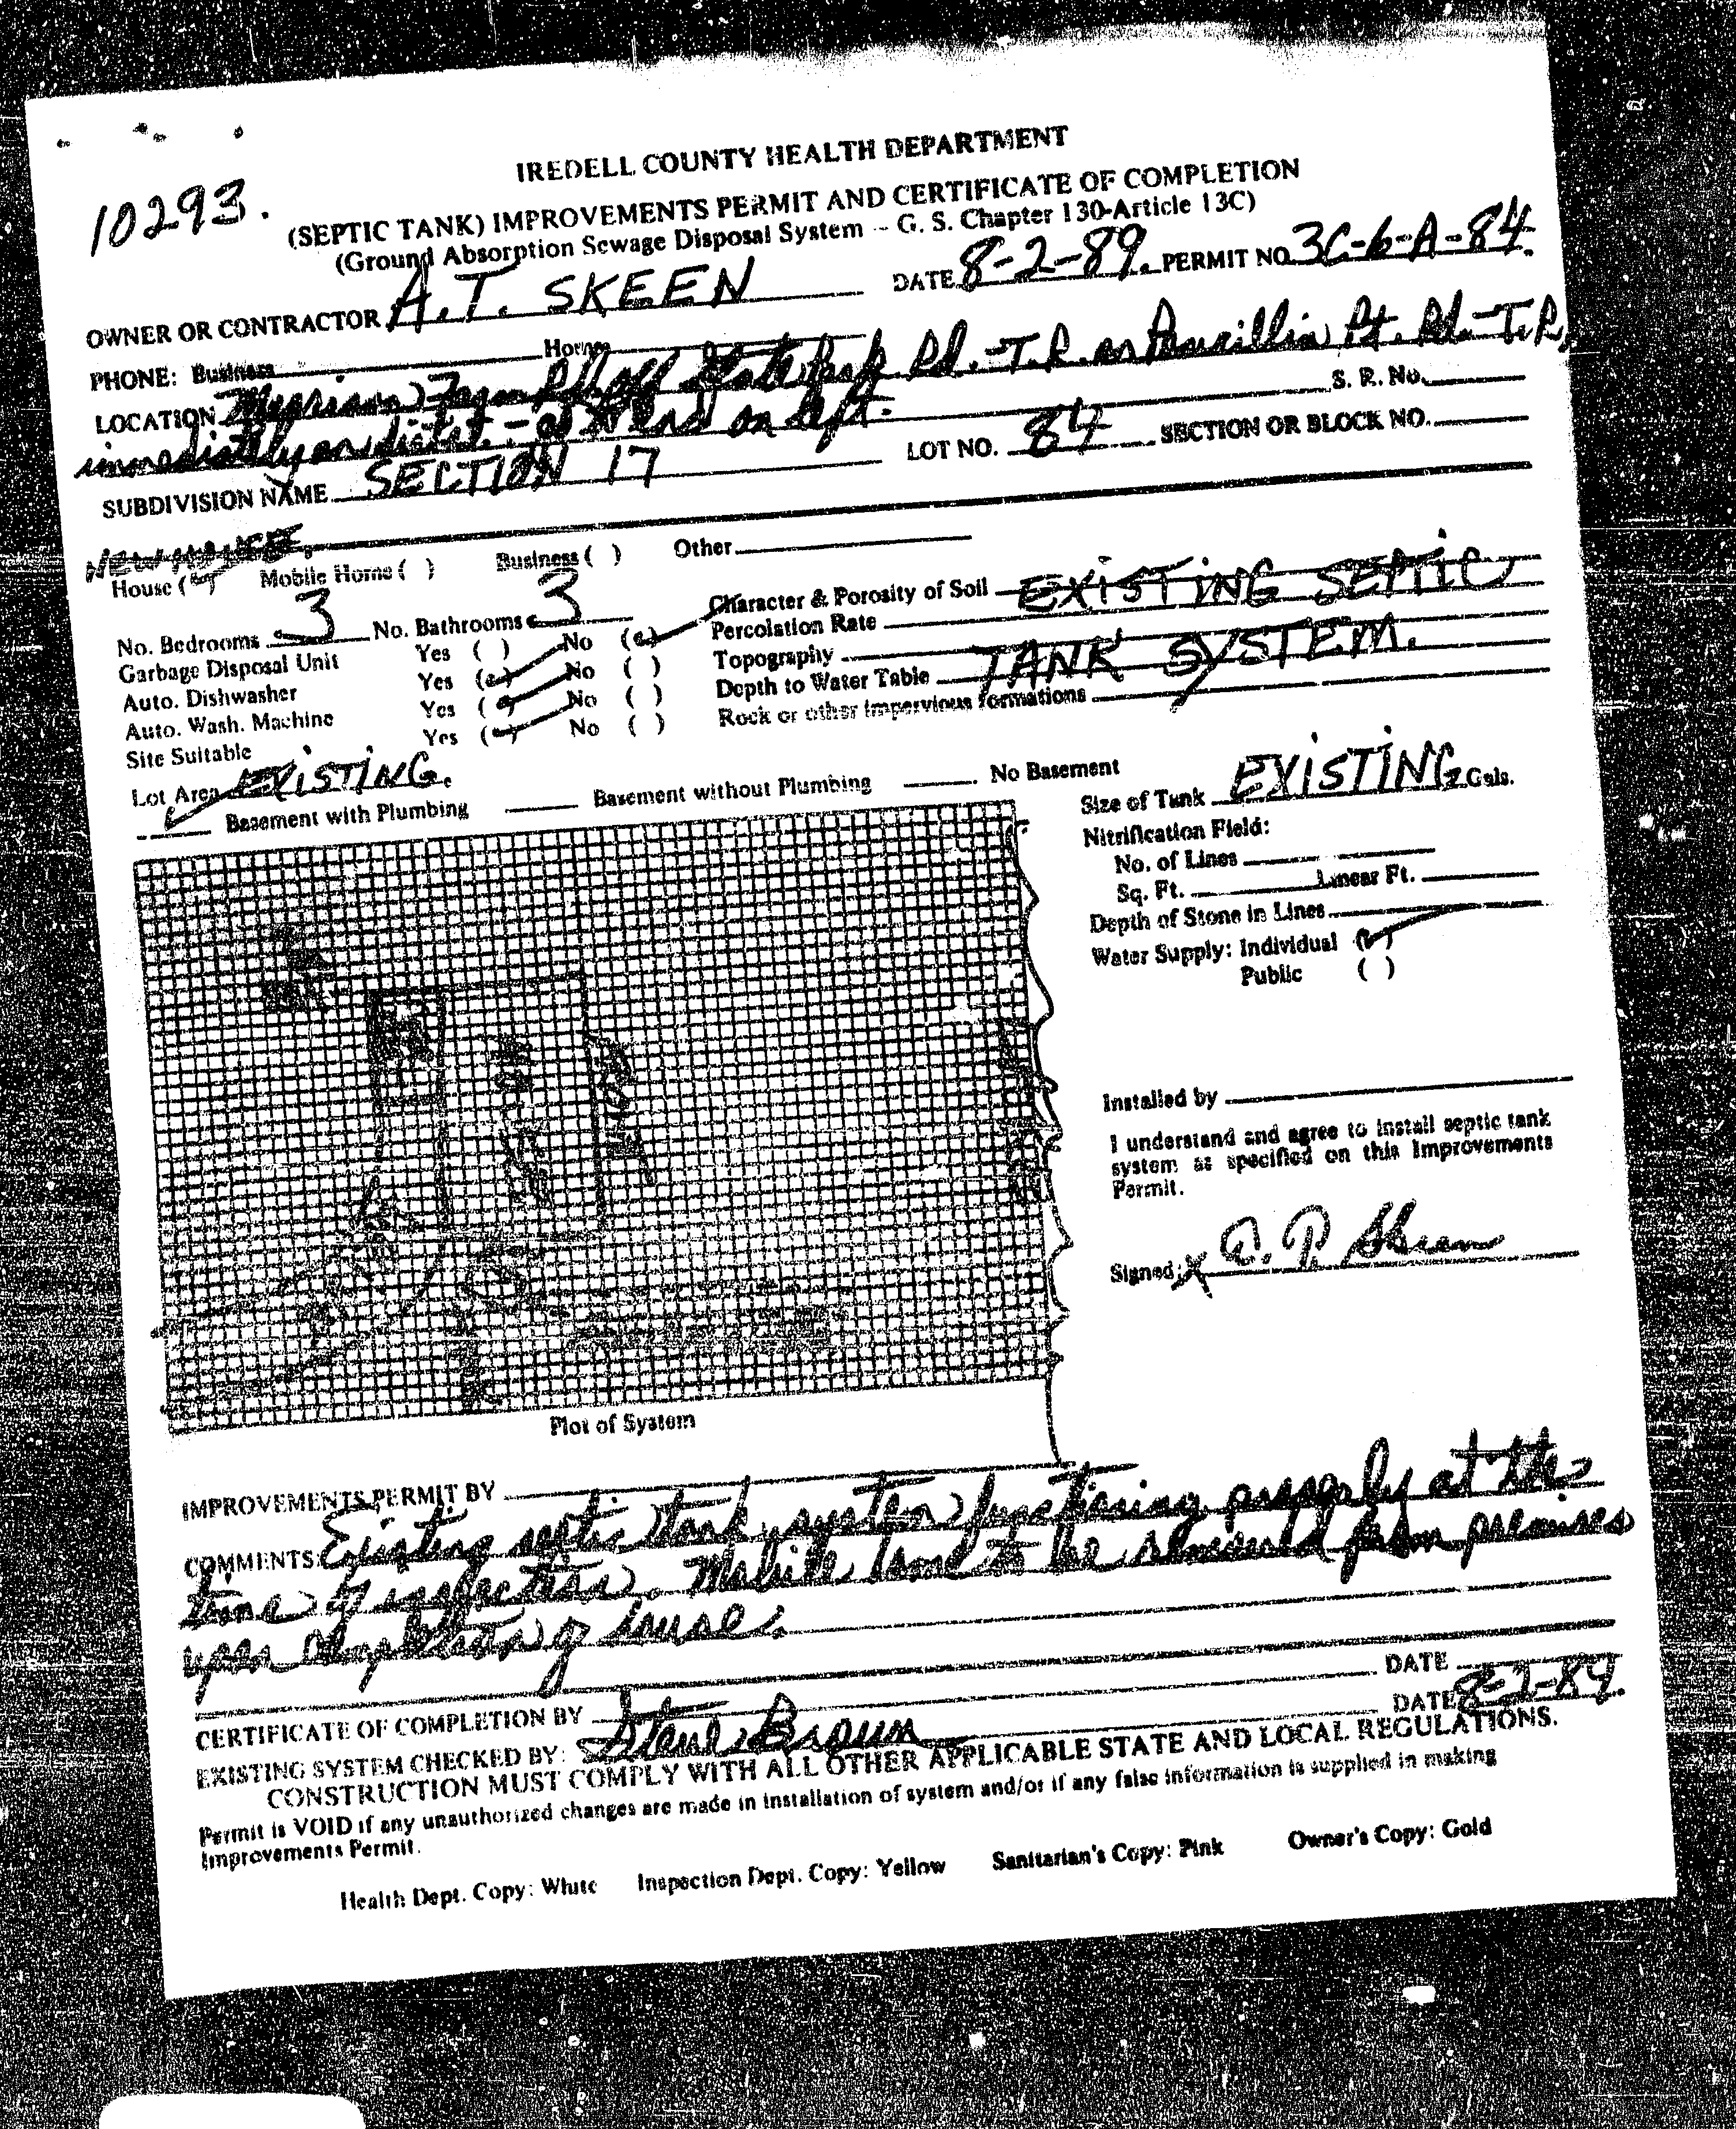 IREDELL COUNTY HEALTH DEPARTMENT
10293.
(SEPTIC TANK) IMPROVEMENTS PERMIT AND CERTIFICATE OF COMPLETION
(Ground Absorption Sewage Disposal System -- G. S. Chapter 130-Article 13C)
OWNER OR CONTRACTOR A.T. SKEEN DATE 8-2-89. PERMIT NO 3C-6-A-84.
PHONE: Business Home
LOCATION Farm Rd off State Park Rd. - T.R. on Pt. Rd. - T.R.
S. R. No.
immediately on - at end on left.
SUBDIVISION NAME SECTION 17 LOT NO. 84 SECTION OR BLOCK NO.
NEW HOUSE.
House ( ) Mobile Home ( ) Business ( ) Other
No. Bedrooms 3 No. Bathrooms 3 Character & Porosity of Soil EXISTING SEPTIC
Garbage Disposal Unit Yes ( ) No ( ) Percolation Rate
Auto. Dishwasher Yes ( ) No ( ) Topography TANK SYSTEM.
Auto. Wash. Machine Yes ( ) No ( ) Depth to Water Table
Site Suitable Yes ( ) No ( ) Rock or other impervious formations
Lot Area EXISTING.
Basement with Plumbing Basement without Plumbing No Basement
Size of Tank EXISTING Gals.
Nitrification Field:
No. of Lines
Sq. Ft. Linear Ft.
Depth of Stone in Lines
Water Supply: Individual ( )
Public ( )
Installed by
I understand and agree to install septic tank
system as specified on this Improvements
Permit.
Signed: X Skeen
Plot of System
IMPROVEMENTS PERMIT BY
COMMENTS: Existing septic tank system functioning properly at the
time of inspection. Mobile home to be removed from premises
upon completion of house.
CERTIFICATE OF COMPLETION BY DATE
EXISTING SYSTEM CHECKED BY: Steve Brown DATE 8-2-84.
CONSTRUCTION MUST COMPLY WITH ALL OTHER APPLICABLE STATE AND LOCAL REGULATIONS.
Permit is VOID if any unauthorized changes are made in installation of system and/or if any false information is supplied in making
Improvements Permit.
Health Dept. Copy: White Inspection Dept. Copy: Yellow Sanitarian's Copy: Pink Owner's Copy: Gold